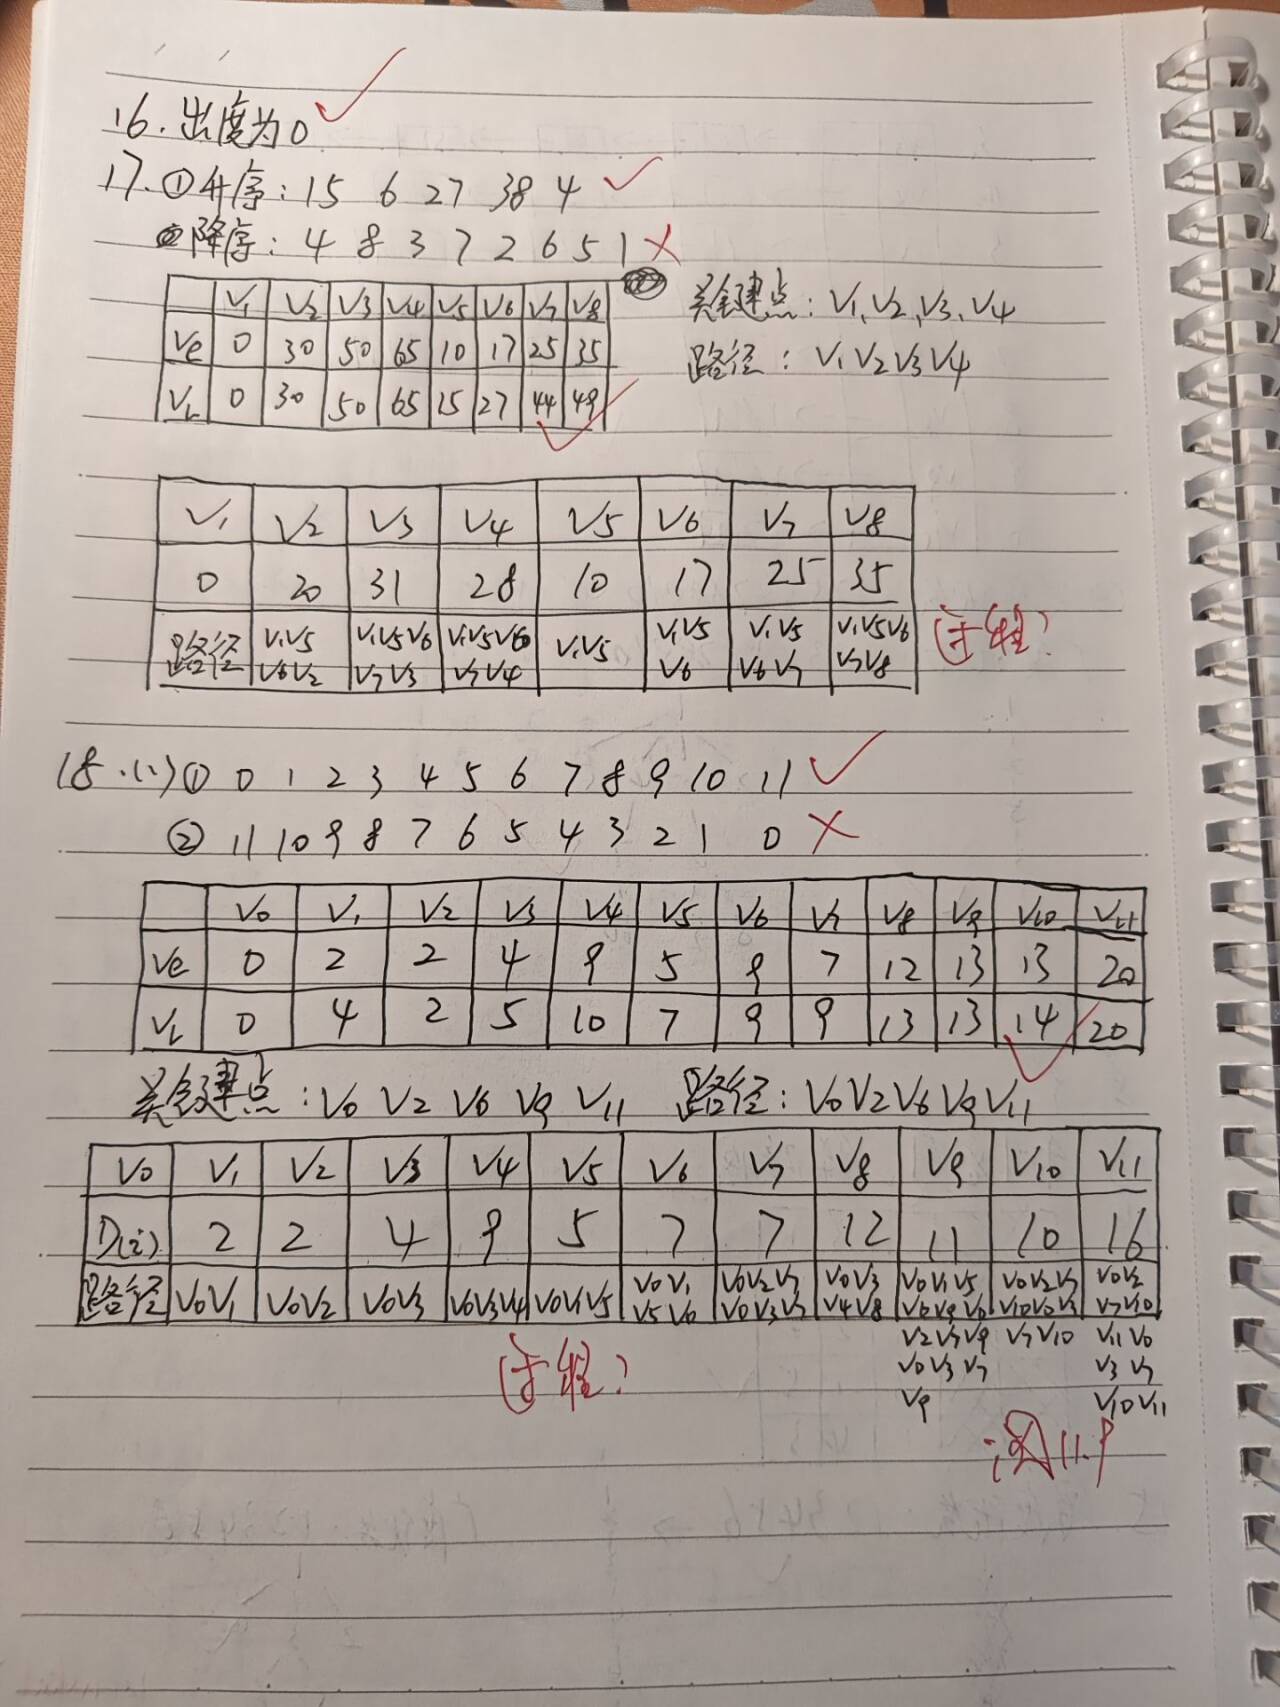 16.出度为0 ✓
17.①升序:15 6 27 38 4 ✓
②降序:4 8 3 7 2 6 5 1 ×
V1 V2 V3 V4 V5 V6 V7 V8
Ve 0 30 50 65 10 17 25 35
VL 0 30 50 65 15 27 44 49 ✓
关键点:V1、V2、V3、V4
路径:V1V2V3V4
V1 V2 V3 V4 V5 V6 V7 V8
0 20 31 28 10 17 25 35
路径 V1V5 V6V2 V1V5V6 V7V3 V1V5V6 V7V4 V1V5 V1V5 V6 V1V5 V6V7 V1V5V6 V7V8
过程?
18.(1)① 0 1 2 3 4 5 6 7 8 9 10 11 ✓
② 11 10 9 8 7 6 5 4 3 2 1 0 ×
V0 V1 V2 V3 V4 V5 V6 V7 V8 V9 V10 V11
Ve 0 2 2 4 9 5 9 7 12 13 13 20
VL 0 4 2 5 10 7 9 9 13 13 14 20 ✓
关键点:V0 V2 V6 V9 V11 路径:V0V2V6V9V11
V0 V1 V2 V3 V4 V5 V6 V7 V8 V9 V10 V11
D(i) 2 2 4 9 5 7 7 12 11 10 16
路径 V0V1 V0V2 V0V3 V0V3V4 V0V1V5 V0V1 V0V2V7 V0V3 V0V1V5 V0V2V7 V0V2
V5V6 V0V3V7 V4V8 V0V9V0 V10V0V3 V7V10
V2V7V9 V7V10 V11V0
V0V3V7 V3V7
V9 V10V11
过程?
11.9